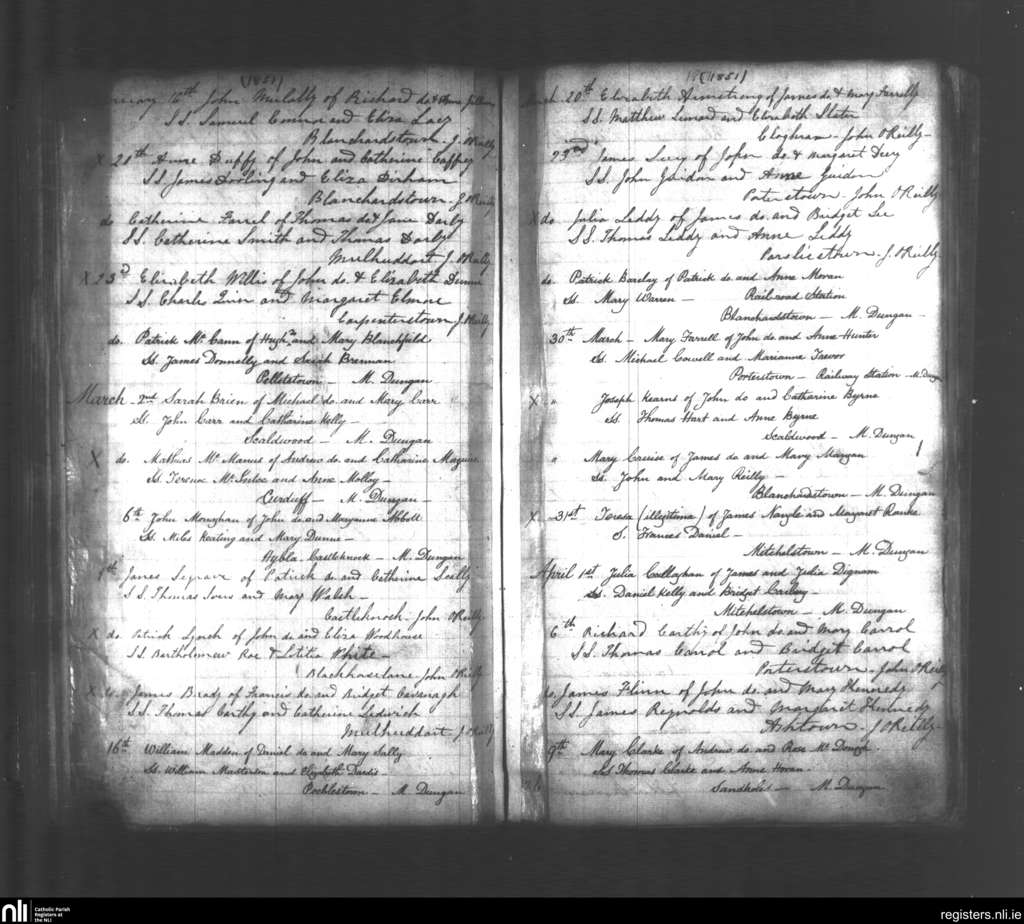 (1851)
16th John Mulally of Richard do & Anne
SS. Samuel and Eliza Lacy
Blanchardstown. J. O'Reilly
X 20th Anne Duffy of John and Catherine Caffrey
SS. James Dooling and Eliza Dirham
Blanchardstown. J. O'Reilly
do. Catherine Farrel of Thomas do & Jane Darby
SS. Catherine Smith and Thomas Darby
Mulhuddart J. O'Reilly
X 23d Elizabeth Willis of John do. & Elizabeth
SS. Charles Quin and Margaret Elmore
Carpenterstown J. O'Reilly
do. Patrick McCann of Hugh do. and Mary Blanchfield
Ss. James Donnelly and Sarah Brennan
Pelletstown — M. Dungan
March 2nd Sarah Brien of Michael do. and Mary Carr
Ss. John Carr and Catharine Kelly —
Scaldwood — M. Dungan
X do. Mathias McManus of Andrew do. and Catharine Maguire
Ss. Terence and Anne Molloy —
Curduff — M. Dungan —
6th John Monaghan of John do. and Maryanne Abbott
Ss. Miles Keating and Mary Dunne —
Castleknock — M. Dungan
James Segrave of Patrick do. and Catherine Scally
SS. Thomas Ivers and Mary Walsh —
Castleknock - John O'Reilly
X do. Patrick Lynch of John do. and Eliza Woodhouse
SS. Bartholomew Roe & Letitia White —
Blackhorselane. John O'Reilly
X do. James Brady of Francis do. and Bridget Cavanagh
SS. Thomas Carthy and Catherine Ledwich
Mulhuddart J. O'Reilly
16th William Madden of Daniel do and Mary Sally
Ss. William Masterson and Elizabeth Dardis —
M. Dungan
(1851)
20th Elizabeth Armstrong of James do & Mary Farrelly
SS. Matthew Lenard and Elizabeth Slater
Cloghran - John O'Reilly —
23rd James of John do. & Margaret
SS. John Guidon and Anne Guidon
Porterstown. John O'Reilly
X do. Julia Leddy of James do. and Bridget Lee
SS. Thomas Leddy and Anne Leddy
Parslicstown. J. O'Reilly
do. Patrick Barclay of Patrick do and Anne Moran
Ss. Mary Warren — Railroad Station
Blanchardstown — M. Dungan —
30th March — Mary Farrell of John do and Anne Hunter
Ss. Michael Cowell and Marianne Trevor
Porterstown — Railway Station — M. Dungan
X " Joseph Kearns of John do and Catharine Byrne
Ss. Thomas Hart and Anne Byrne
Scaldwood — M. Dungan
" Mary Cruise of James do and Mary Mangan
Ss. John and Mary Reilly —
Blanchardstown — M. Dungan
X 31st Teresa (illegitima) of James Nangle and Margaret Rourke
S. Frances Daniel —
Mitchelstown — M. Dungan
April 1st Julia Callaghan of James and Julia Dignam
Ss. Daniel Kelly and Bridget
Mitchelstown — M. Dungan
6th Richard Carthy of John do and Mary Carrol
SS. Thomas Carrol and Bridget Carrol
Porterstown - John O'Reilly
do. James Flinn of John do. and Mary Kennedy
SS. James Reynolds and Margaret Kennedy
Ashtown. J. O'Reilly.
9th Mary Clarke of Andrew do and Rose
Ss. Thomas Clarke and Anne Horan —
Sandholes — M. Dungan
nli
Catholic Parish
Registers at
the NLI
registers.nli.ie